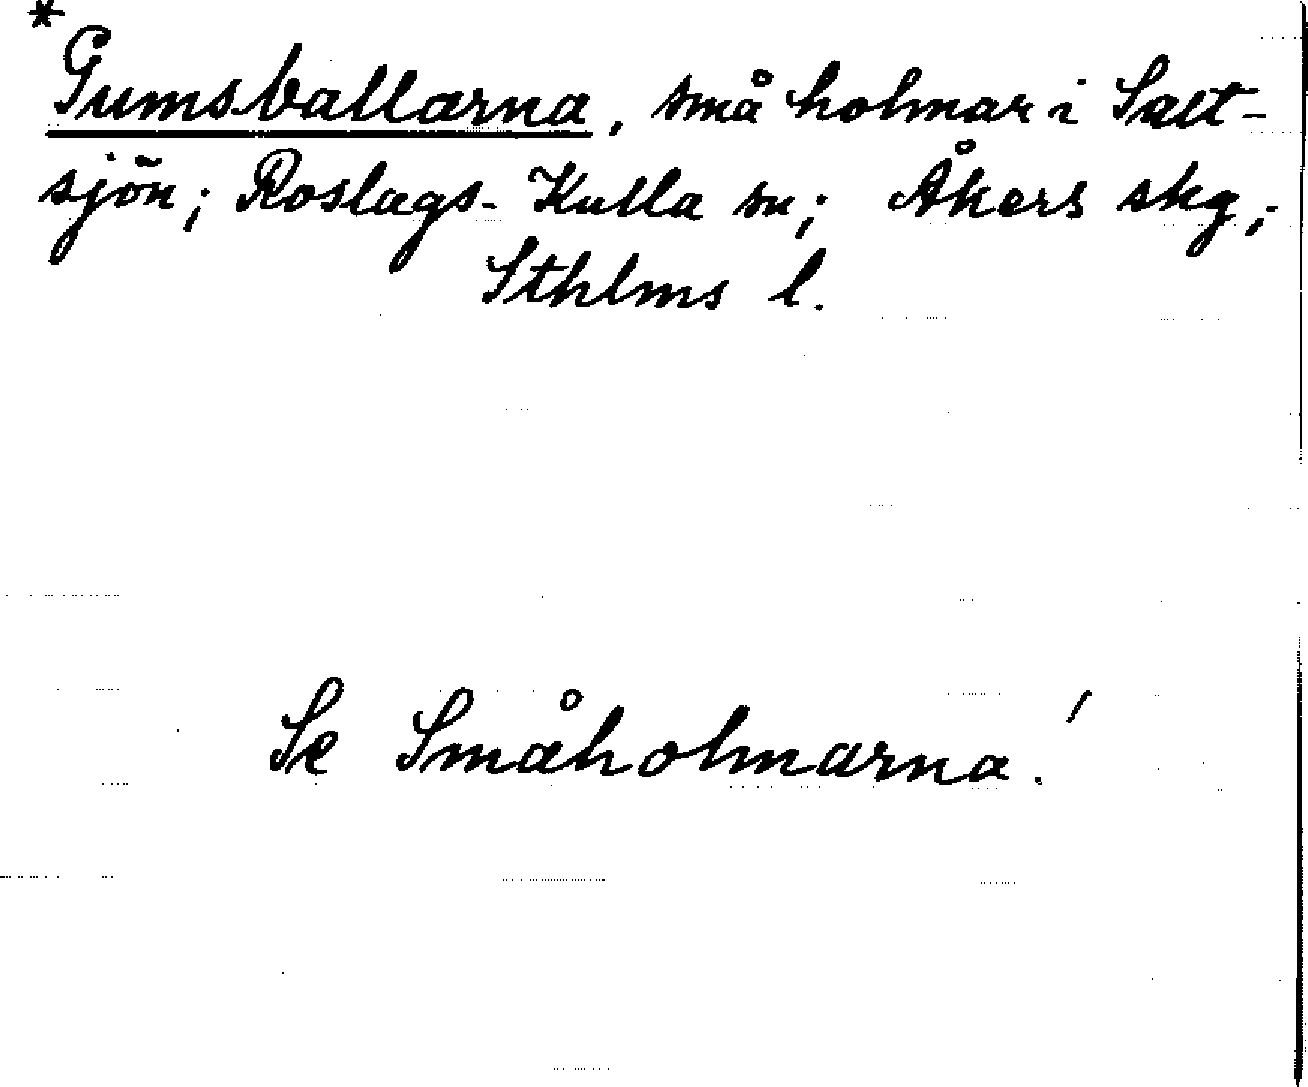 *
Gumsballarna, små holmar i Salt-
sjön; Roslags-Kulla sn; Åkers skg;
Sthlms l.
Se Småholmarna!